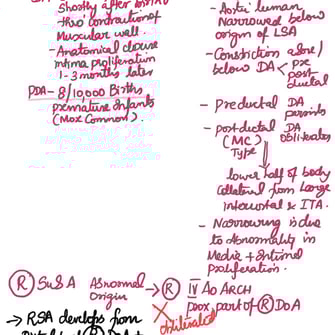 Shortly after
thro' contraction of
Muscular wall.
- Anatomical closure
intima proliferation
1-3 months later
PDA - 8/10,000 Births
premature Infants
(Mox Common).
- Aortic lumen
Narrowed below
origin of LSA
- Constriction above/
below DA < pre
post
ductal
- Preductal DA
persists
- postductal DA
(MC) obliterates
Type
lower half of body
collateral from large
Intercostal & ITA.
- Narrowing is due
to Abnormality in
Media + intimal
proliferation.
(R) SubA Abnormal → (R) IV Ao ARCH
origin prox part of (R) DoA
→ RSA develops from
obliterated